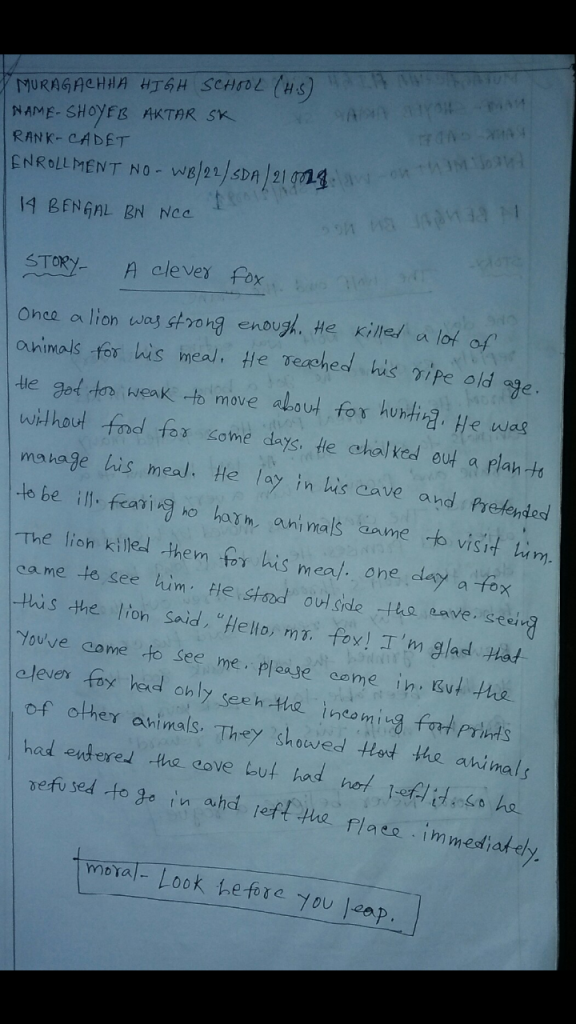 MURAGACHHA HIGH SCHOOL (H.S)
NAME- SHOYEB AKTAR SK
RANK- CADET
ENROLLMENT NO - WB/22/SDA/21
14 BENGAL BN NCC
STORY- A clever fox
Once a lion was strong enough. He killed a lot of
animals for his meal. He reached his ripe old age.
He got too weak to move about for hunting. He was
without food for some days. He chalked out a plan to
manage his meal. He lay in his cave and pretended
to be ill. fearing no harm, animals came to visit him.
The lion killed them for his meal. one day a fox
came to see him. He stood outside the cave. seeing
this the lion said, "Hello, mr. fox! I'm glad that
You've come to see me. please come in. But the
clever fox had only seen the incoming foot prints
of other animals. They showed that the animals
had entered the cave but had not left it. so he
refused to go in and left the place immediately.
moral- Look before you leap.